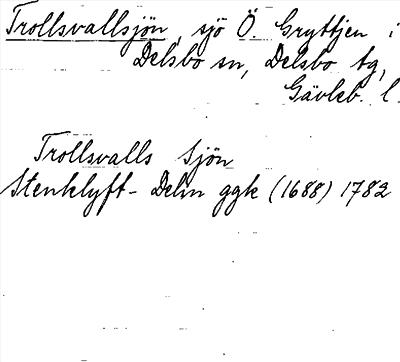 Trollsvallsjön, sjö Ö. Gryttjen i
Delsbo sn, Delsbo tg,
Gävleb. l.
Trollsvalls Sjön
Stenklyft- Delin ggk (1688) 1782